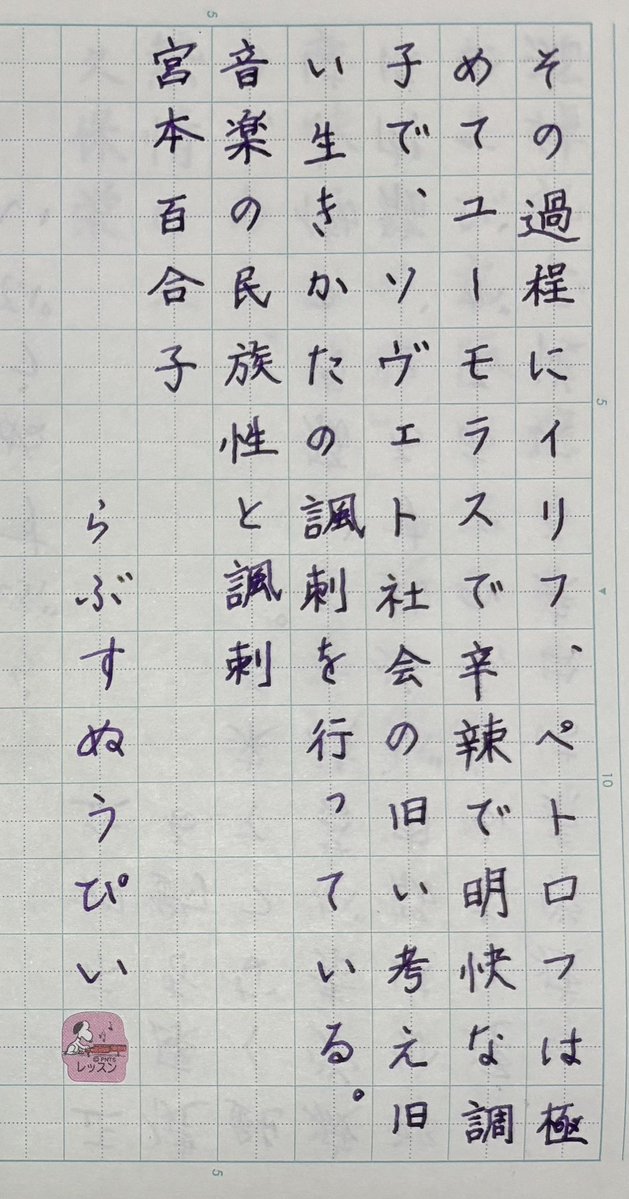 その過程にイリフ、ペトロフは極
めてユーモラスで辛辣で明快な調
子で、ソヴェト社会の旧い考え旧
い生きかたの諷刺を行っている。
音楽の民族性と諷刺
宮本百合子
らぶすぬうぴい
レッスン
©PNTS
5
5
10
5